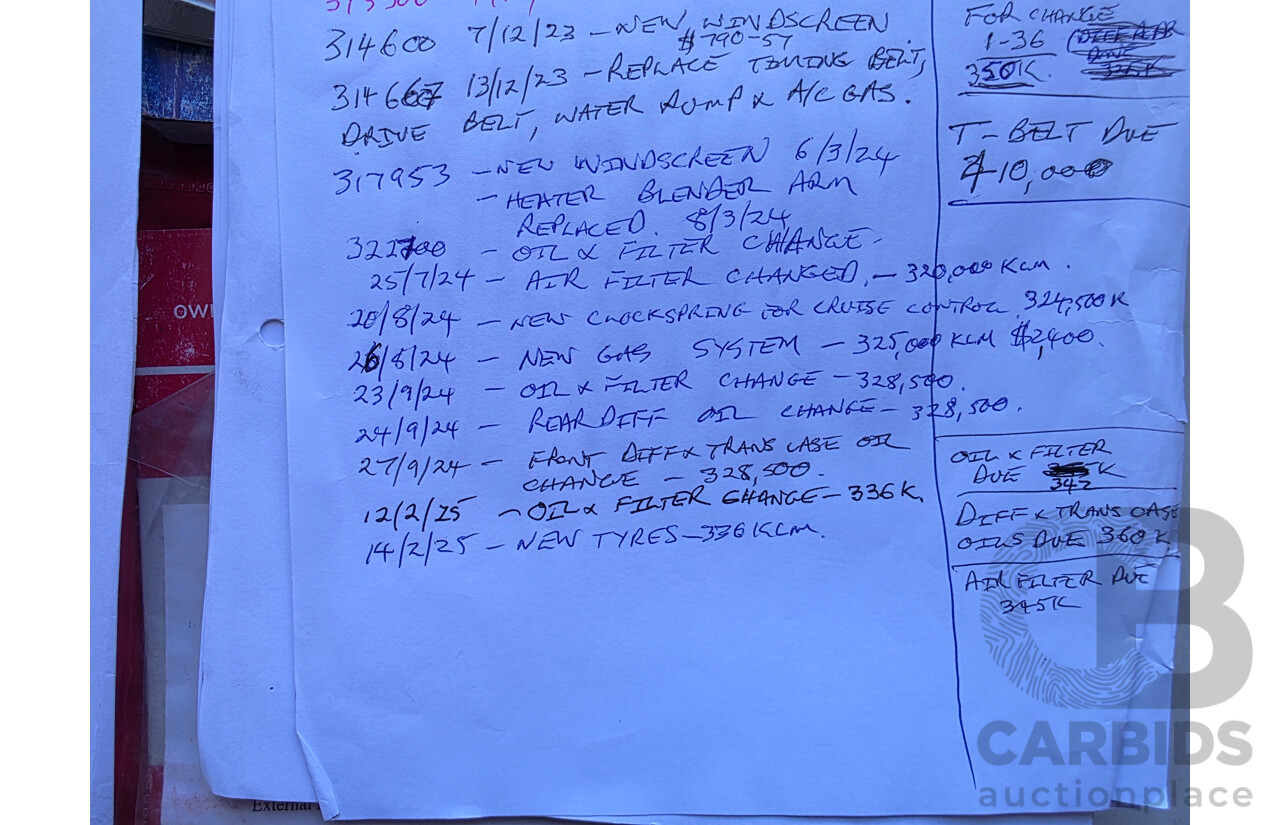 314600 7/12/23 - NEW WINDSCREEN
$790-57
314667 13/12/23 - REPLACE TIMING BELT,
DRIVE BELT, WATER PUMP & A/C GAS.
317953 - NEW WINDSCREEN 6/3/24
- HEATER BLENDER ARM
REPLACED. 8/3/24
322700 - OIL & FILTER CHANGE -
25/7/24 - AIR FILTER CHANGED. - 320,000 KCM.
20/8/24 - NEW CLOCKSPRING FOR CRUISE CONTROL. 324,500K
26/8/24 - NEW GAS SYSTEM - 325,000 KLM $2,400.
23/9/24 - OIL & FILTER CHANGE - 328,500.
24/9/24 - REAR DIFF OIL CHANGE - 328,500.
27/9/24 - FRONT DIFF & TRANS CASE OIL
CHANGE - 328,500.
12/2/25 - OIL & FILTER CHANGE - 336K.
14/2/25 - NEW TYRES - 336KLM.
FOR CHANGE
1-36
350K.
T-BELT DUE
410,000
OIL & FILTER
DUE K
342
DIFF & TRANS CASE
OILS DUE 360K
AIR FILTER DUE
345K
OWN
External
CB
CARBIDS
auctionplace